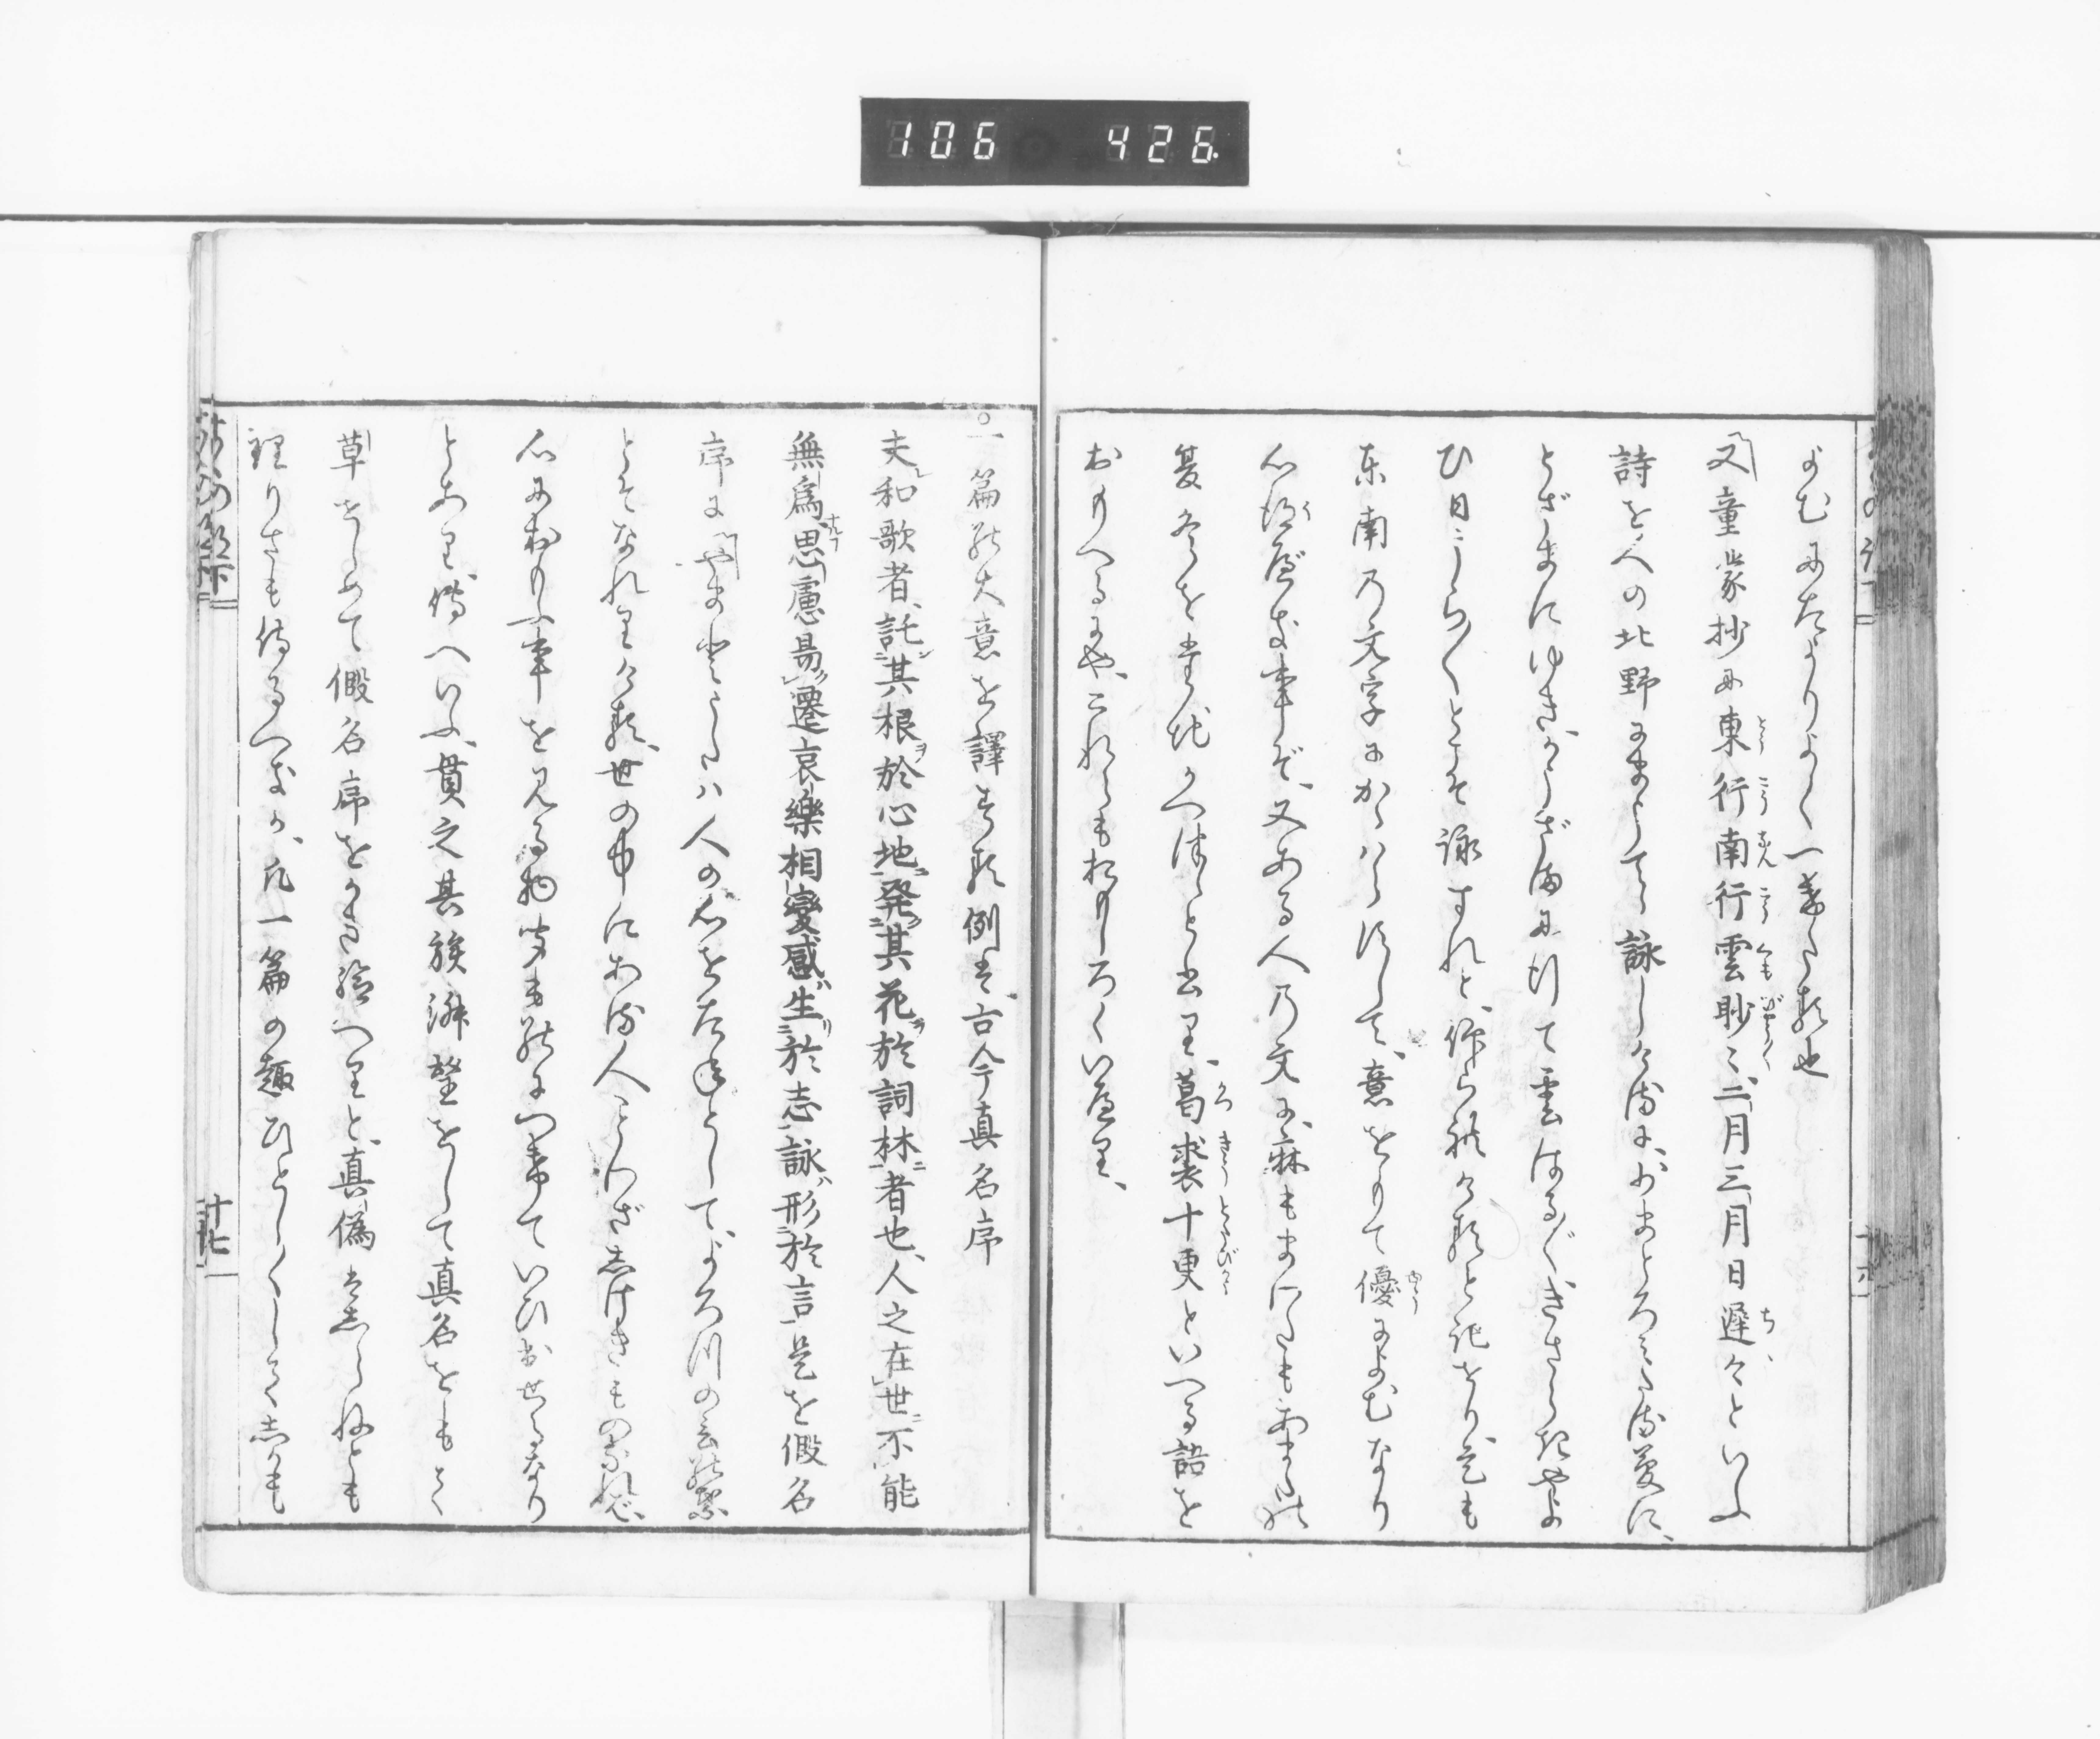 106 426
よむにたよりよく一季たる也
又童蒙抄に東行南行雲眇〻二月三月日遅々といふ
詩を人の北野にまうてゝ詠しけるに、少まとろみたる夢に、
とざまにゆきかうざまに行て雲はる〴〵きさらぎやよ
ひ日うら〳〵とこそ詠ずれと、仰られけると記せり、是も
東南の文字にかゝはらずして、意をもて優によむなり
心得べき事ぞ、又ある人の文に、麻もまにたもあまたの
夏冬をたちかへつとあり、葛裘十更といへる語を
おもへるにや、これらもおもしろくいへり、
一篇の大意を譯する例は古今真名序
夫和歌者、託其根於心地、発其花於詞林者也、人之在世不能
無為、思慮易遷哀樂相變感生於志詠形於言是を假名
序に、やまとうたハ人の心をたねとして、よろづの言の葉
とぞなれりける、世の中にある人ことわざしげきものなれば、
心におもふ事を見る物聞ものにつけていひ出せるなり
とあり、傳へいふ、貫之其族淑望をして真名をもて
草せしめて假名序をかき給へりと、真偽はしらねとも
理りさも侍るへきか、凡一篇の趣ひとしくしてしかも
十七